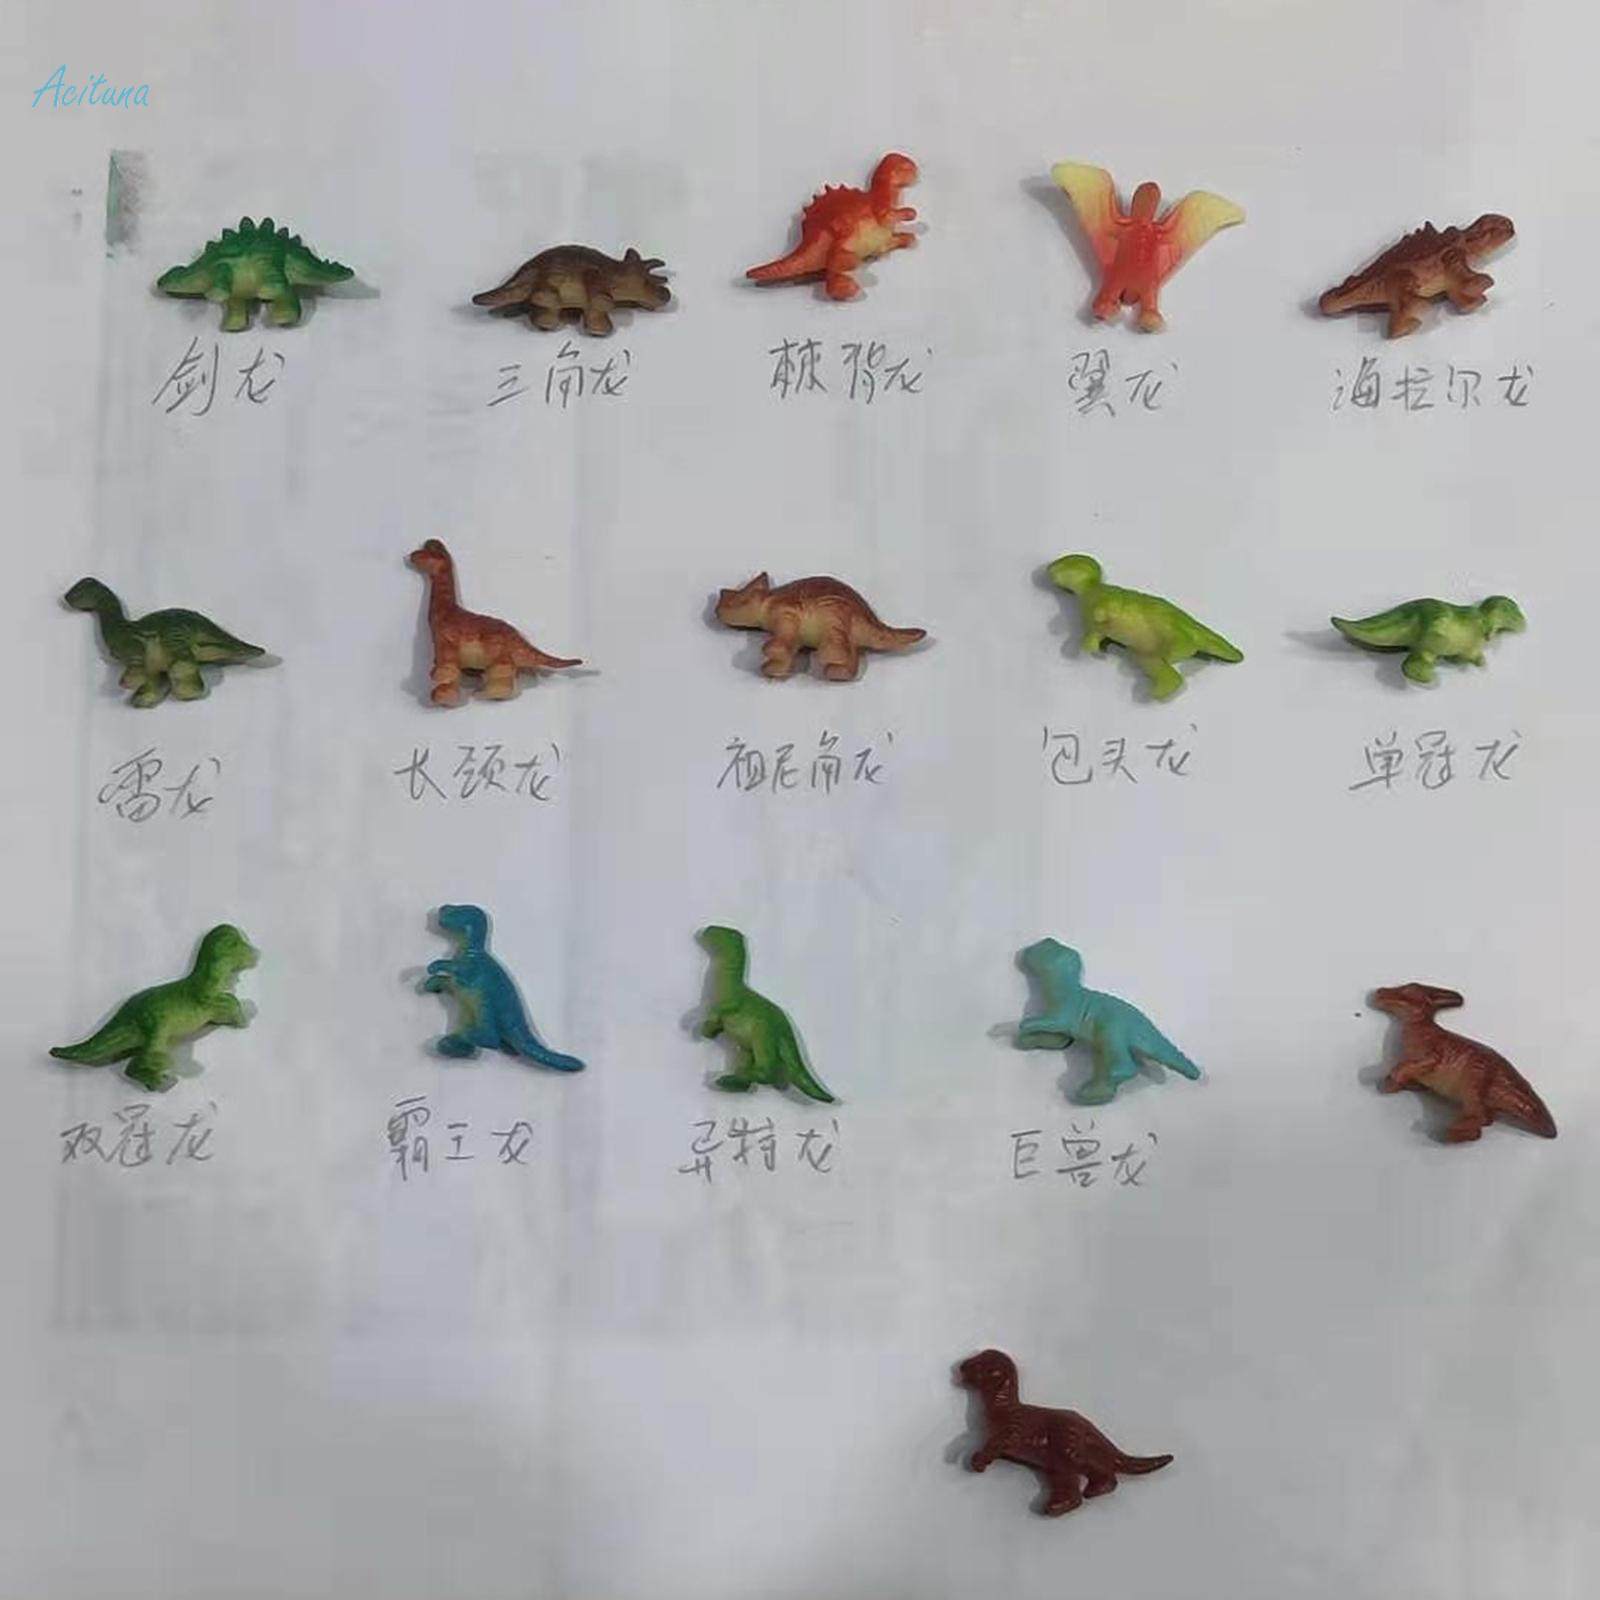 Acituna
剑龙
三角龙
棘背龙
翼龙
海拉尔龙
雷龙
长颈龙
祖尼角龙
包头龙
单冠龙
双冠龙
霸王龙
异特龙
巨兽龙